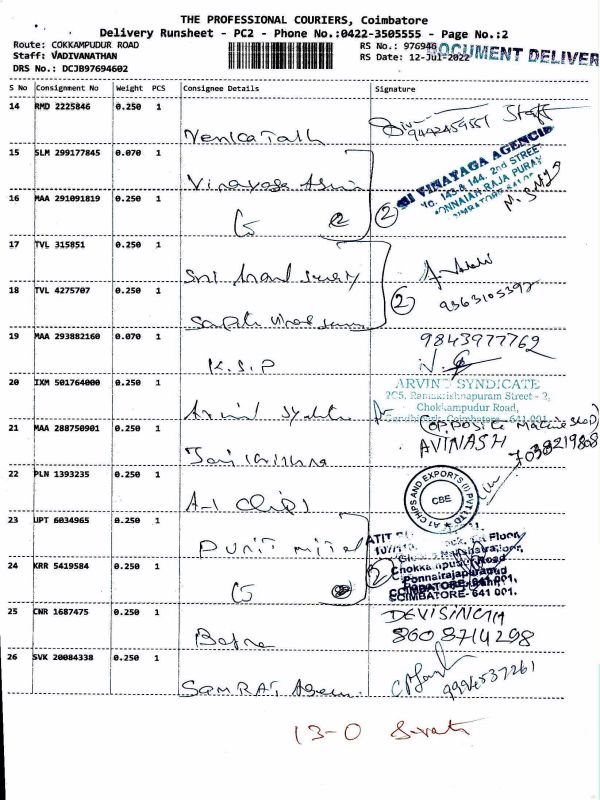 THE PROFESSIONAL COURIERS, Coimbatore
Delivery Runsheet - PC2 - Phone No.:0422-3505555 - Page No.:2
Route: COKKAMPUDUR ROAD RS No.: 976940
DOCUMENT DELIVER
Staff: VADIVANATHAN RS Date: 12-Jul-2022
DRS No.: DCJB97694602
S No Consignment No Weight PCS Consignee Details Signature
14 RMD 2225846 0.250 1
Staff
15 SLM 299177845 0.070 1
Vinayaga
SRI VINAYAGA AGENCIE
No. 143 & 144, 2nd STREET
PONNAIAH RAJA PURAM
16 MAA 291091819 0.250 1
2
17 TVL 315851 0.250 1
Sri
18 TVL 4275707 0.250 1
2
9363105392
19 MAA 293882160 0.070 1
K.S.P
9843977762
20 IXM 501764000 0.250 1
ARVIND SYNDICATE
2C5, Ramakrishnapuram Street - 2,
Chokkampudur Road,
Coimbatore - 641 001.
21 MAA 288750901 0.250 1
(OPPOSITE
AVINASH
7038219868
22 PLN 1393235 0.250 1
A-1 Chips
A1 CHIPS AND EXPORTS (I) PVT LTD
CBE
23 UPT 6034965 0.250 1
Punit mital
24 KRR 5419584 0.250 1
2
Floor,
Chokkampudur Road
Ponnairajapuram
COIMBATORE- 641 001.
25 CNR 1687475 0.250 1
DEVISINGH
8608714298
26 SVK 20084338 0.250 1
SAMRAT Agen
9994537261
13-0